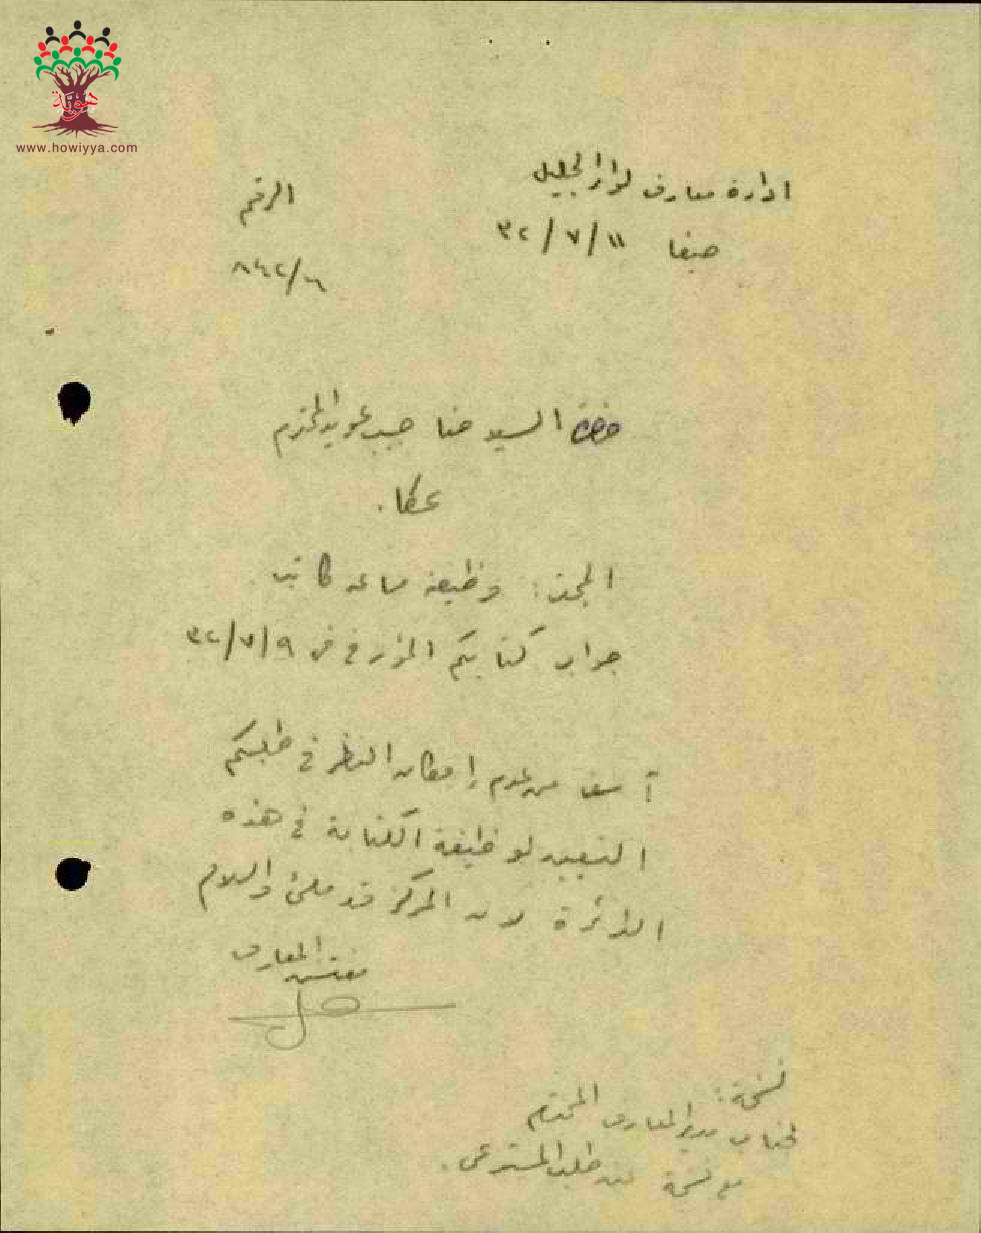 هوية
www.howiyya.com
ادارة معارف لواء الجليل
حيفا ١١/٧/٣٢
الرقم
٨٤٢/٦
حضرة السيد حنا حبيب عويد المحترم
عكا.
المبحث: وظيفة مساعد كاتب
جواب كتابكم المؤرخ في ٩/٧/٣٢
آسف من عدم إمكان النظر في طلبكم
التعيين لوظيفة الكتابة في هذه
الدائرة لان المركز قد ملئ والسلام
مفتش المعارف
نسخة:
لجناب مدير المعارف المحترم
مع نسخة من طلب المستدعي.